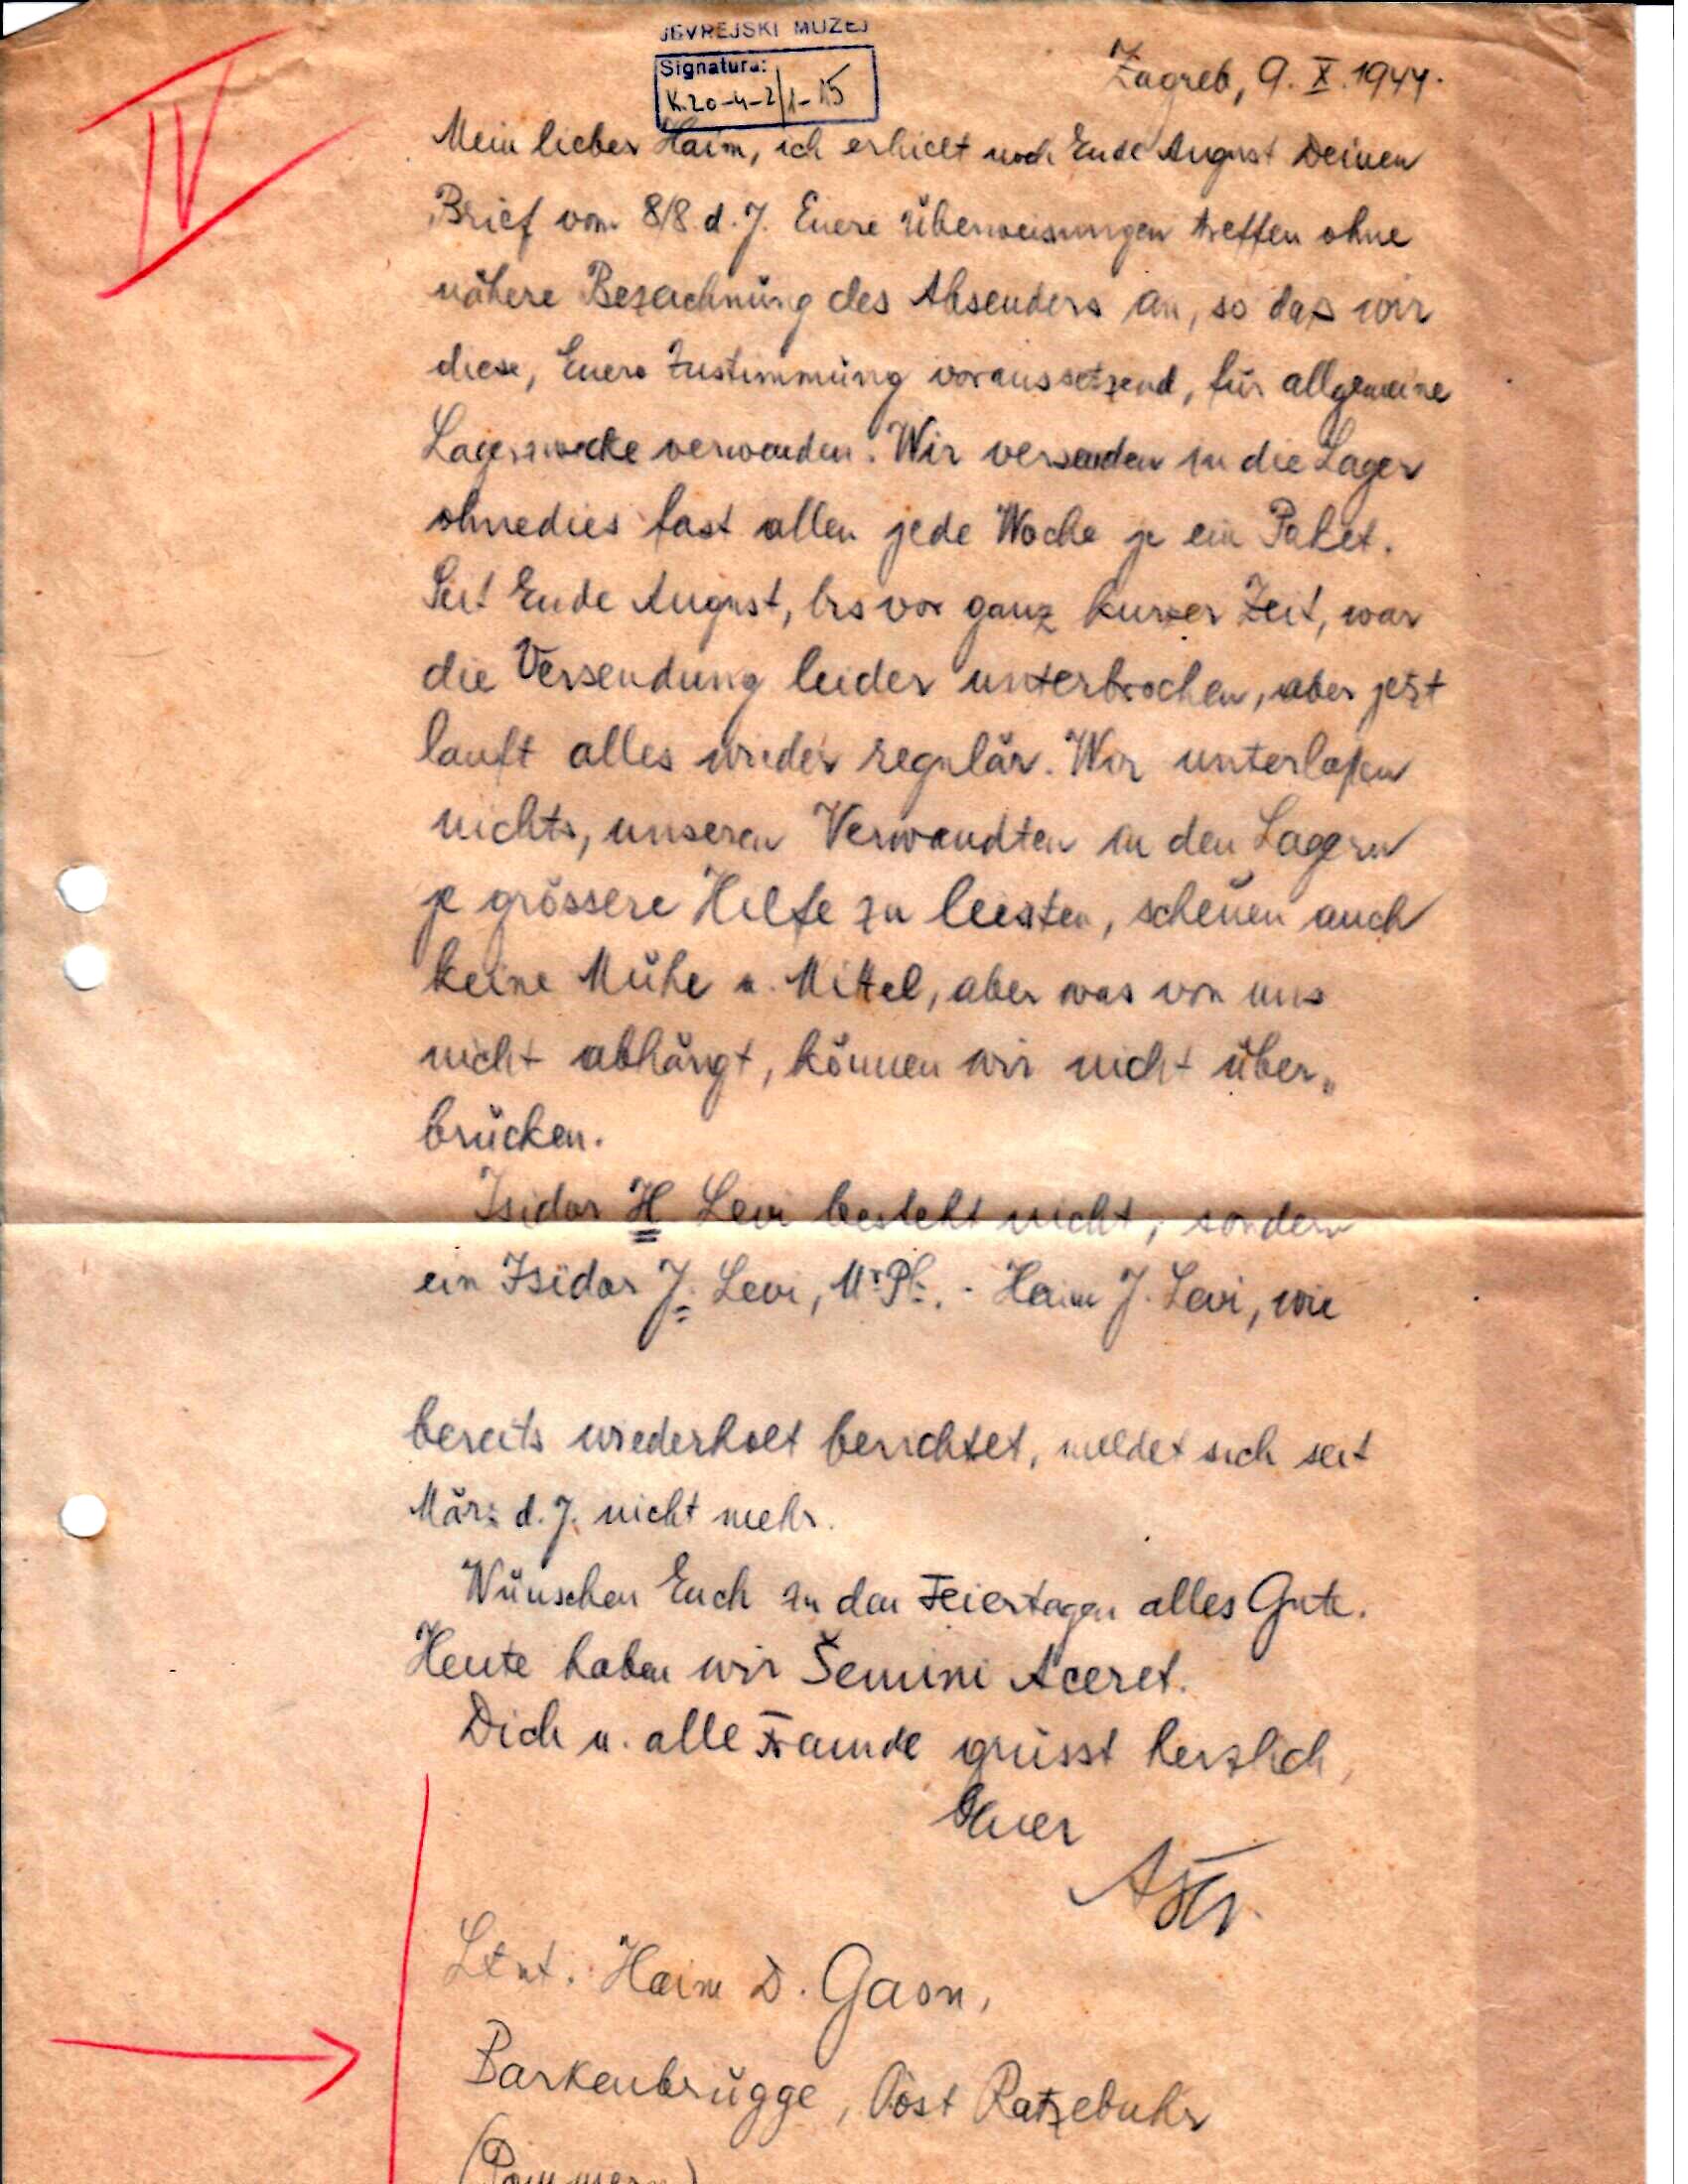 IV
JEVREJSKI MUZEJ
Signatura:
K.20-4-2/1-15
Zagreb, 9. X. 1944.
Mein lieber Haim, ich erhielt noch Ende August Deinen
Brief vom 8/8 d. J. Euere Überweisungen treffen ohne
nähere Bezeichnung des Absenders an, so daß wir
diese, Euere Zustimmung voraussetzend, für allgemeine
Lagerzwecke verwenden. Wir versenden in die Lager
ohnedies fast allen jede Woche je ein Paket.
Seit Ende August, bis vor ganz kurzer Zeit, war
die Versendung leider unterbrochen, aber jetzt
lauft alles wieder regulär. Wir unterlaßen
nichts, unseren Verwandten in den Lagern
je grössere Hilfe zu leisten, scheuen auch
keine Mühe u. Mittel, aber was von uns
nicht abhängt, können wir nicht über„
brücken.
Isidor H Levi besteht nicht, sondern
ein Isidor J. Levi, - Haim J. Levi, wie
bereits wiederholt berichtet, meldet sich seit
März d. J. nicht mehr.
Wünschen Euch zu den Feiertagen alles Gute.
Heute haben wir Šemini Aceret.
Dich u. alle Freunde grüsst herzlich,
Euer
Ltnt. Haim D. Gaon,
Barkenbrügge, Post Ratzebuhr
(Pommern)